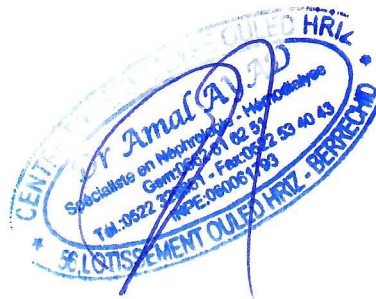 CENTRE OULED HRIZ
Dr Amal
Spécialiste en Néphrologie - Hémodialyse
Gsm:0662 61 02 51
Tél.:0522 - Fax:0522 53 40 43
INPE:06006
56, LOTISSEMENT OULED HRIZ - BERRECHID